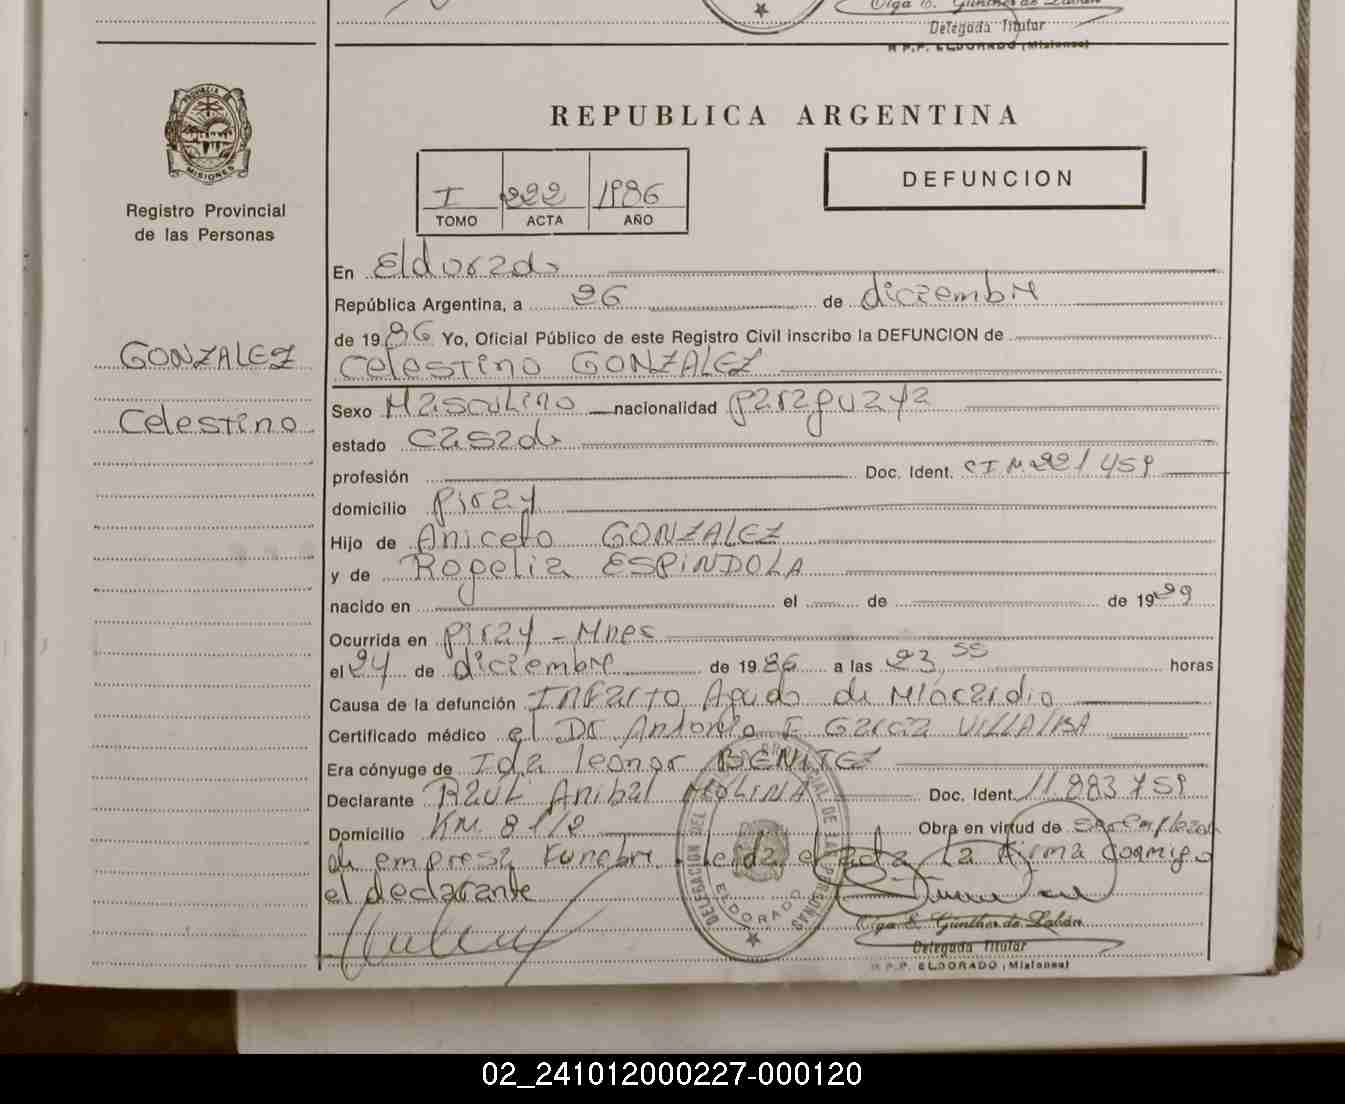 Olga E. Günther de Labán
Delegada Titular
R.P.P. ELDORADO (Misiones)
PROVINCIA DE
MISIONES
Registro Provincial
de las Personas
REPUBLICA ARGENTINA
I 222 1986
TOMO ACTA AÑO
DEFUNCION
En Eldorado
República Argentina, a 26 de diciembre
de 1986 Yo, Oficial Público de este Registro Civil inscribo la DEFUNCION de
Celestino GONZALEZ
GONZALEZ
Celestino
Sexo Masculino nacionalidad paraguaya
estado casado
profesión Doc. Ident. CI M 221 459
domicilio piray
Hijo de Aniceto GONZALEZ
y de Rogelia ESPINDOLA
nacido en el de de 1929
Ocurrida en piray - Mnes
el 24 de diciembre de 1986 a las 23,55 horas
Causa de la defunción Infarto Agudo de Miocardio
Certificado médico el Dr Antonio F Garcia VILLALBA
Era cónyuge de Ida leonor BENITEZ
Declarante Raul Anibal MOLINA Doc. Ident. 11.883.759
Domicilio KM 8 1/2 Obra en virtud de ser empleado
de empresa Funebre. Leida el acta La firma conmigo
el declarante
DELEGACION DEL REGISTRO PROVINCIAL DE LAS PERSONAS
ELDORADO
Olga E. Günther de Labán
Delegada Titular
R.P.P. ELDORADO (Misiones)
02_241012000227-000120